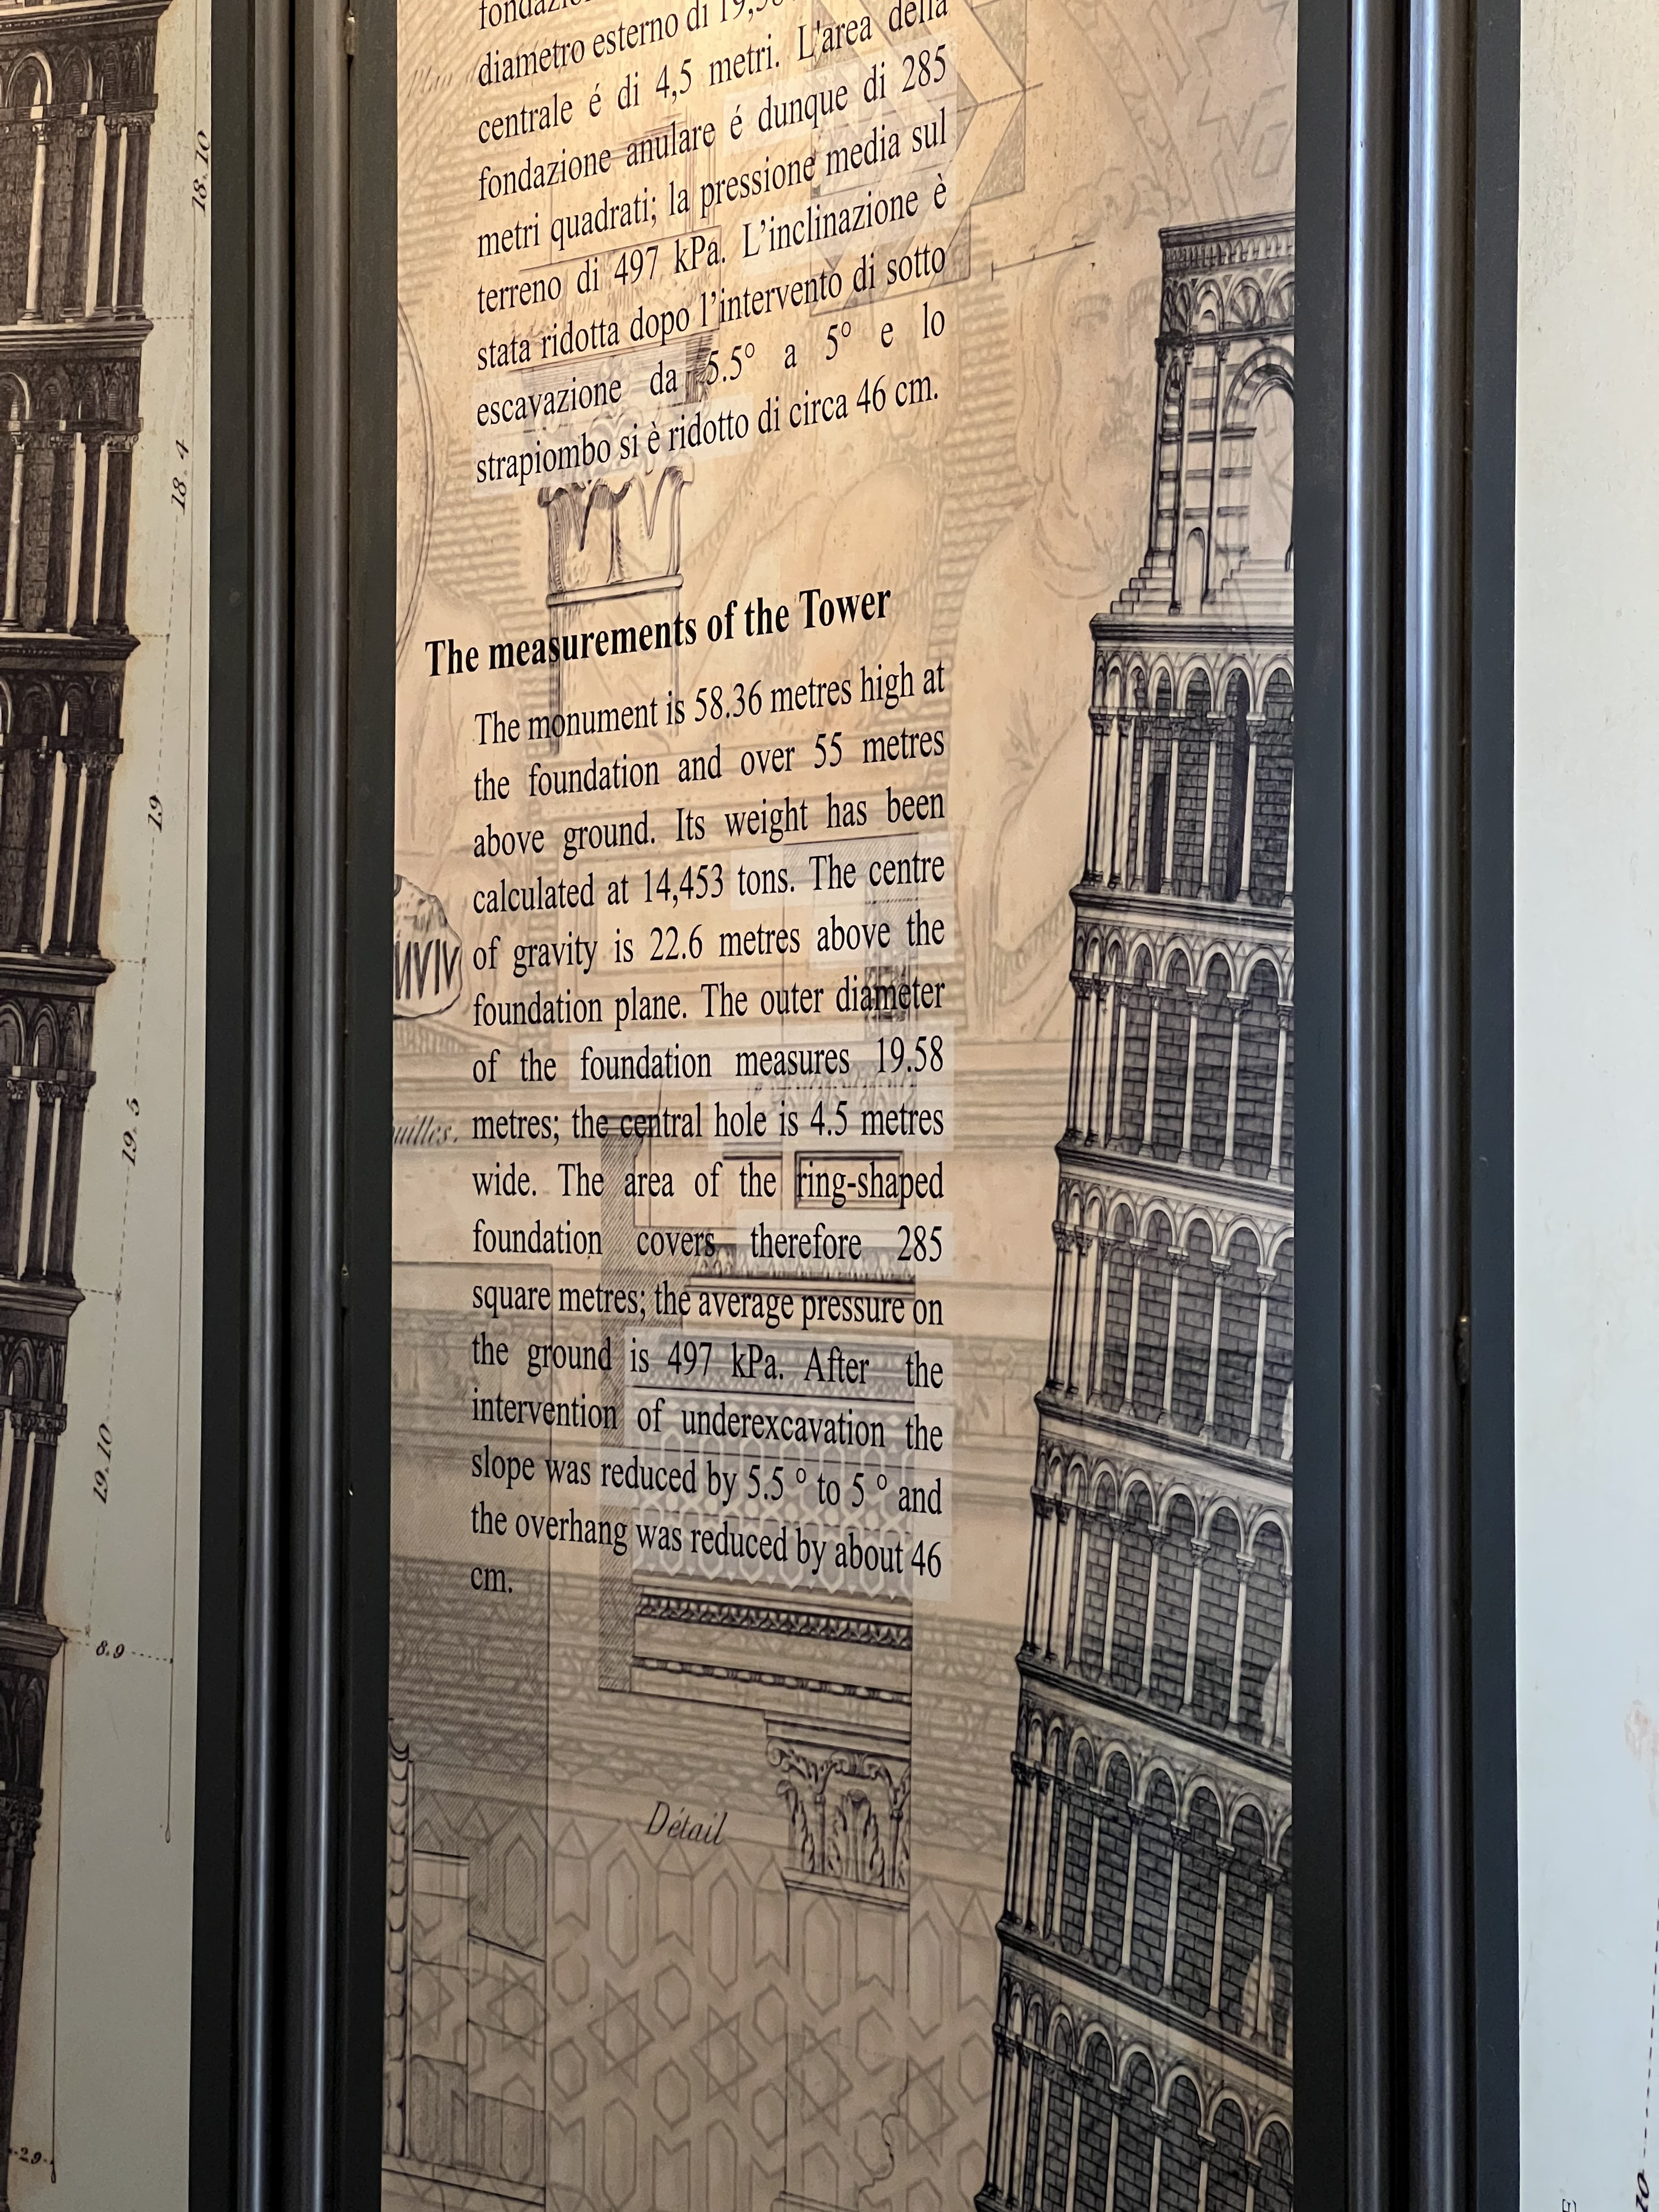 diametro esterno di
centrale é di 4,5 metri. L'area della
fondazione anulare é dunque di 285
metri quadrati; la pressione media sul
terreno di 497 kPa. L’inclinazione è
stata ridotta dopo l’intervento di sotto
escavazione da 5.5° a 5° e lo
strapiombo si è ridotto di circa 46 cm.
The measurements of the Tower
The monument is 58.36 metres high at
the foundation and over 55 metres
above ground. Its weight has been
calculated at 14,453 tons. The centre
of gravity is 22.6 metres above the
foundation plane. The outer diameter
of the foundation measures 19.58
metres; the central hole is 4.5 metres
wide. The area of the ring-shaped
foundation covers therefore 285
square metres; the average pressure on
the ground is 497 kPa. After the
intervention of underexcavation the
slope was reduced by 5.5 ° to 5 ° and
the overhang was reduced by about 46
cm.
Détail
18.10
18.4
19
19.5
19.10
8.9